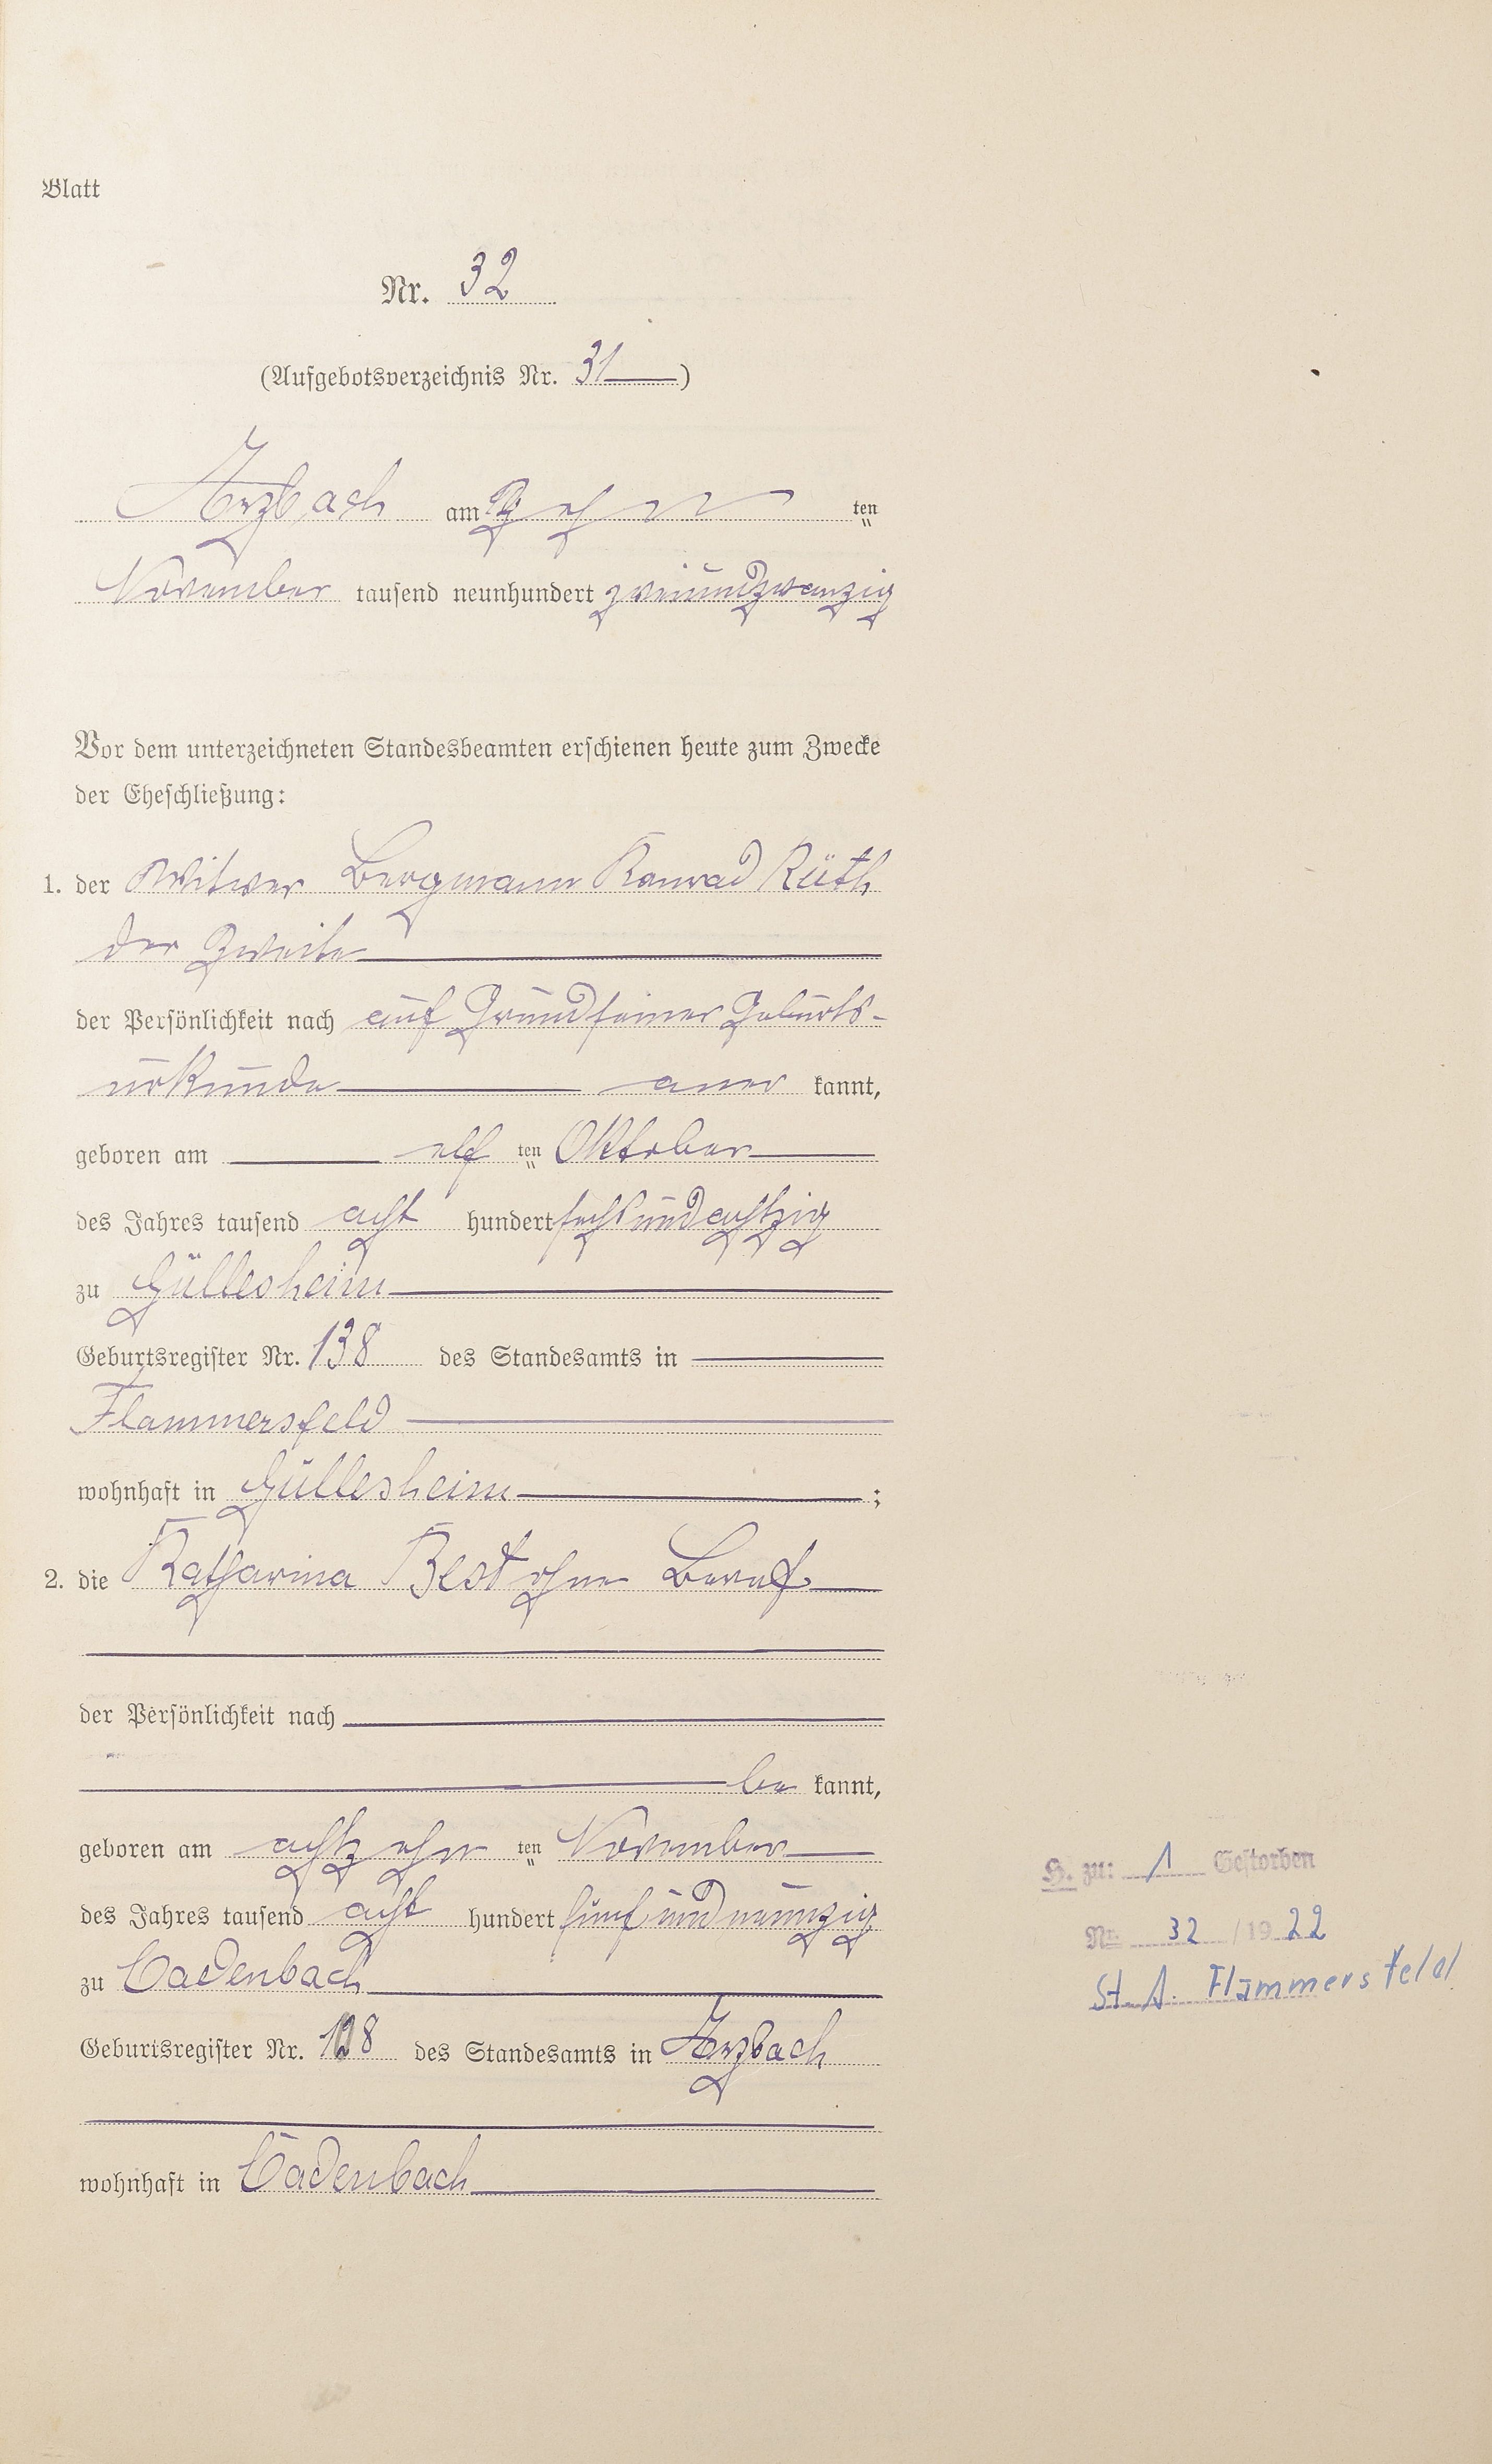 Blatt
Nr. 32
(Aufgebotsverzeichnis Nr. 31)
Arzbach am Zehn ten
November tausend neunhundert zweiundzwanzig
Vor dem unterzeichneten Standesbeamten erschienen heute zum Zwecke
der Eheschließung:
1. der Witwer Bergmann Konrad Rüth
der Zweite
der Persönlichkeit nach auf Grund seiner Geburts-
urkunde aner kannt,
geboren am elf ten Oktober
des Jahres tausend acht hundert sechsundachtzig
zu Güllesheim
Geburtsregister Nr. 138 des Standesamts in
Flammersfeld
wohnhaft in Güllesheim ;
2. die Katharina Best ohne Beruf
der Persönlichkeit nach
be kannt,
geboren am achtzehn ten November
des Jahres tausend acht hundert fünf und neunzig
zu Cadenbach
Geburtsregister Nr. 128 des Standesamts in Arzbach
wohnhaft in Cadenbach
H. zu: 1 Gestorben
Nr. 32 / 19 22
St. A. Flammersfeld